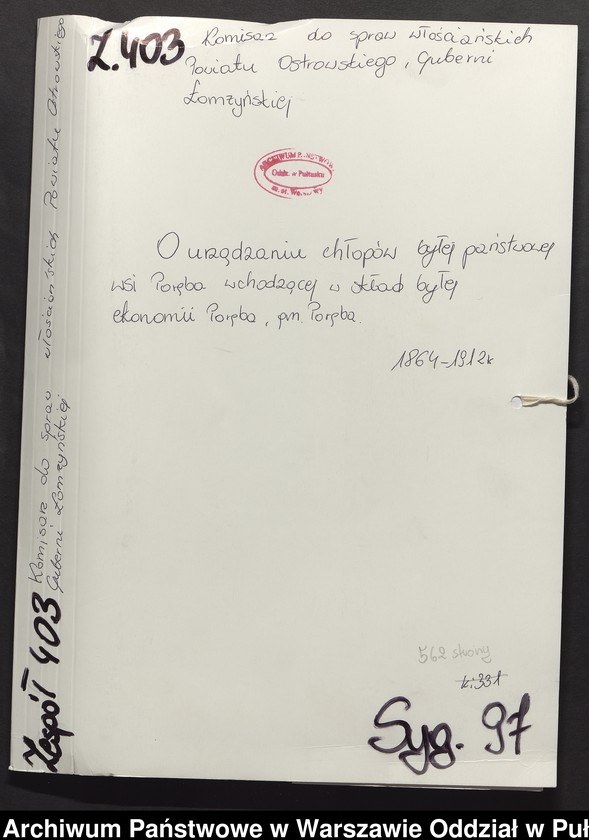 Z.403 Komisarz do spraw włościańskich
Powiatu Ostrowskiego, Guberni
Łomżyńskiej
ARCHIWUM PAŃSTWOWE
Oddz. w Pułtusku
m. st. Warszawy
O urządzaniu chłopów byłej państwowej
wsi Poręba wchodzącej w skład byłej
ekonomii Poręba, gm. Poręba.
1864-1912r
562 strony
k. 331
Syg. 97
Zespół 403 Komisarz do spraw włościańskich Powiatu Ostrowskiego
Guberni Łomżyńskiej
Archiwum Państwowe w Warszawie Oddział w Puł